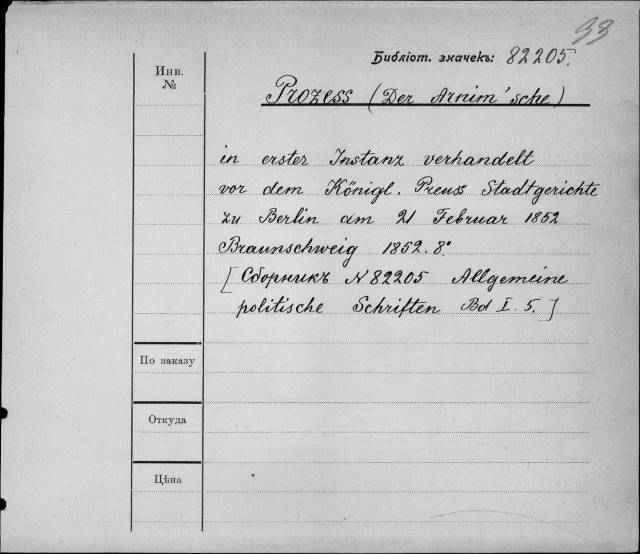 33
Библіот. значекъ: 82205.
Инв.
№
Prozess (Der Arnim'sche)
in erster Instanz verhandelt
vor dem Königl. Preuss Stadtgerichte
zu Berlin am 21 Februar 1852
Braunschweig 1852. 8°
[Сборникъ N 82205 Allgemeine
politische Schriften Bd I. 5.]
По заказу
Откуда
Цѣна